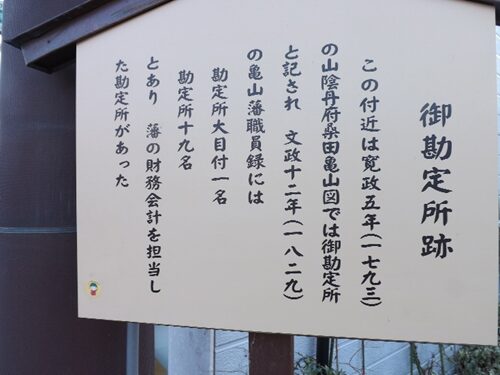 御勘定所跡
この付近は寛政五年(一七九三)
の山陰丹府桑田亀山図では御勘定所
と記され 文政十二年(一八二九)
の亀山藩職員録には
勘定所大目付一名
勘定所十九名
とあり 藩の財務会計を担当し
た勘定所があった